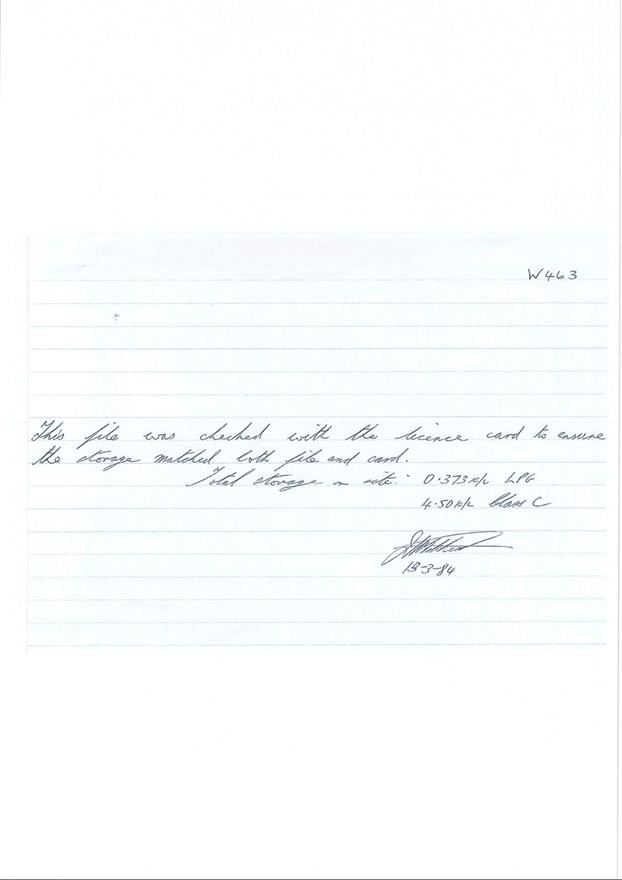 W463
This file was checked with the licence card to ensure
the storage matched both file and card.
Total storage on site:- 0.373 K/L LPG
4.50 K/L Class C
13-3-84